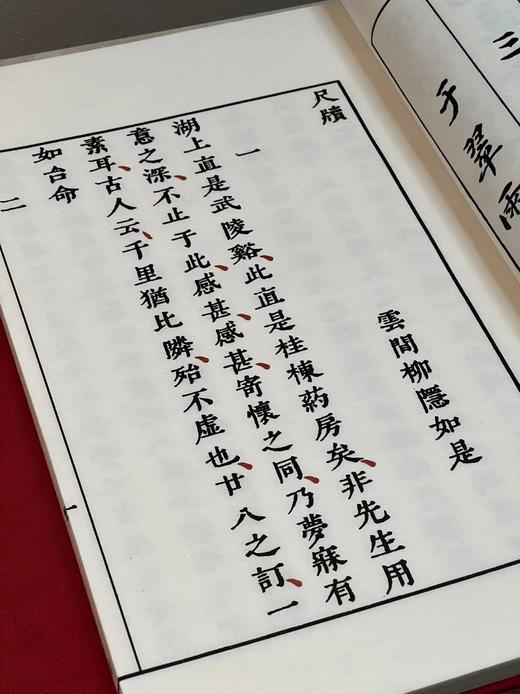 三
于翠
尺牘
雲間柳隱如是
一
湖上直是武陵谿、此直是桂棟藥房矣、非先生用
意之深、不止于此、感甚感甚、寄懷之同、乃夢寐有
素耳、古人云、千里猶比隣、殆不虛也、廿八之訂、一
如台命
二